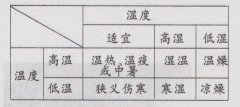 温度
适宜 高湿 低湿
温度 高温 温热、温疫或中暑 湿温 温燥
低温 狭义伤寒 寒湿 凉燥